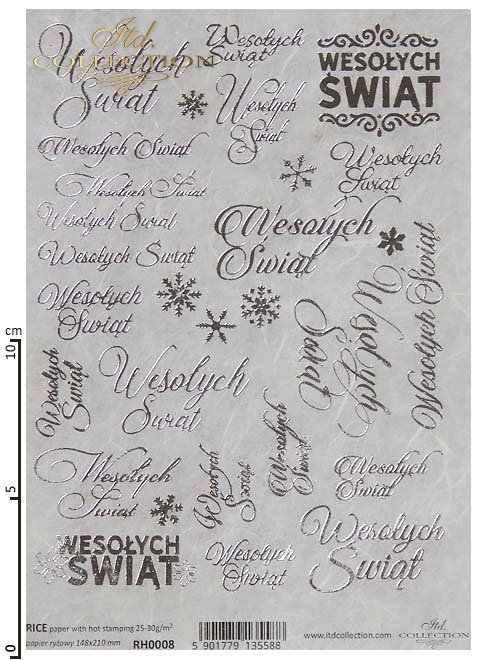 Itd.
COLLECTION
Wesołych
Świąt
Wesołych
Świąt
WESOŁYCH
ŚWIĄT
Wesołych
Świąt
Wesołych Świąt
Wesołych
Świąt
Wesołych Świąt
Wesołych Świąt
Wesołych
Świąt
Wesołych Świąt
Wesołych
Świąt
Wesołych
Świąt
Wesołych Świąt
Wesołych
Świąt
Wesołych
Świąt
Wesołych
Świąt
Wesołych
Świąt
Wesołych
Świąt
Wesołych
Świąt
Wesołych
Świąt
WESOŁYCH
ŚWIĄT
Wesołych
Świąt
cm
10
5
0
RICE paper with hot stamping 25-30g/m²
papier ryżowy 148x210 mm RH0008
5 901779 135588
www.itdcollection.com
Itd.
COLLECTION